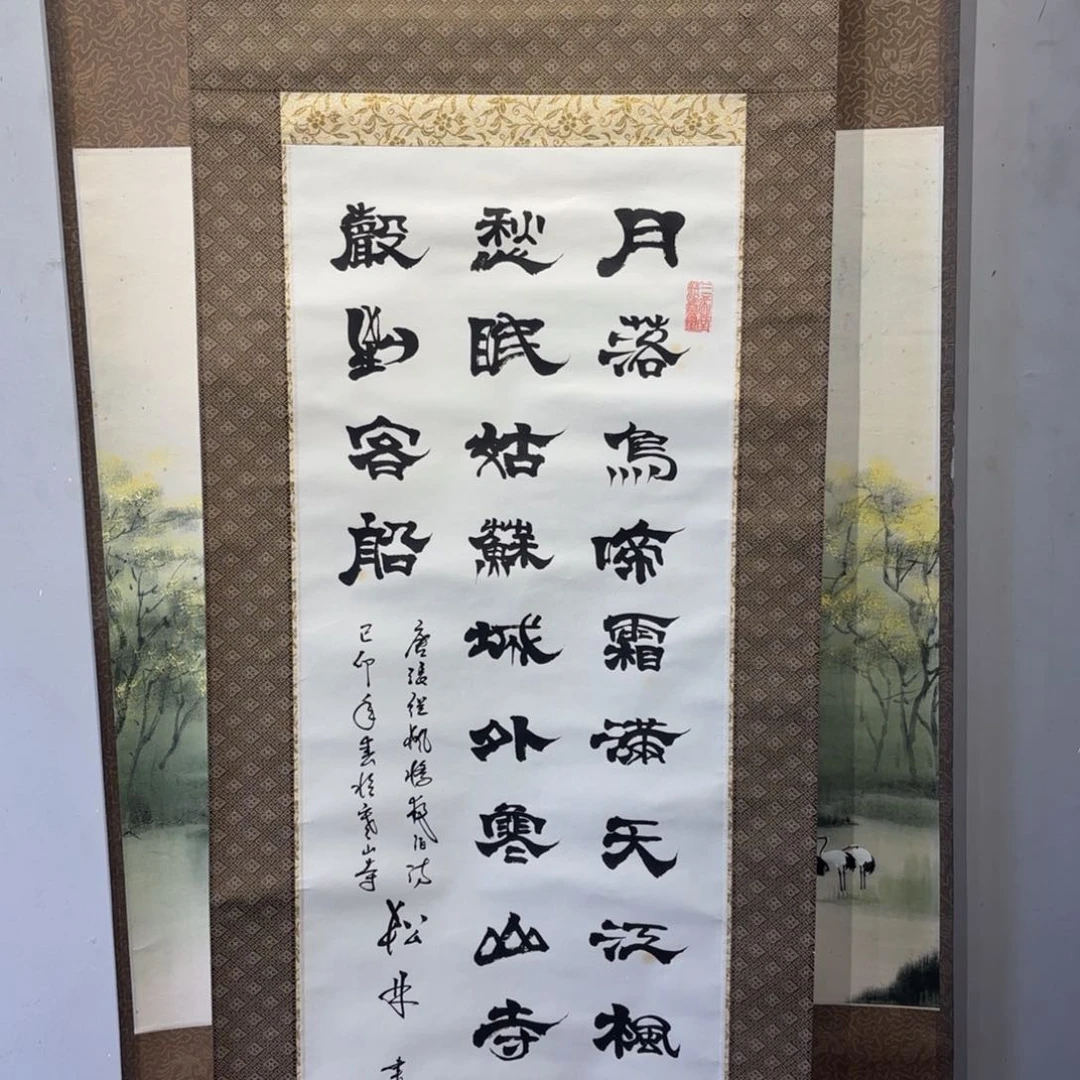 月落烏啼霜滿天江楓
愁眠姑蘇城外寒山寺
聲到客船
唐張繼楓橋夜泊詩
己卯年春於寒山寺
松林